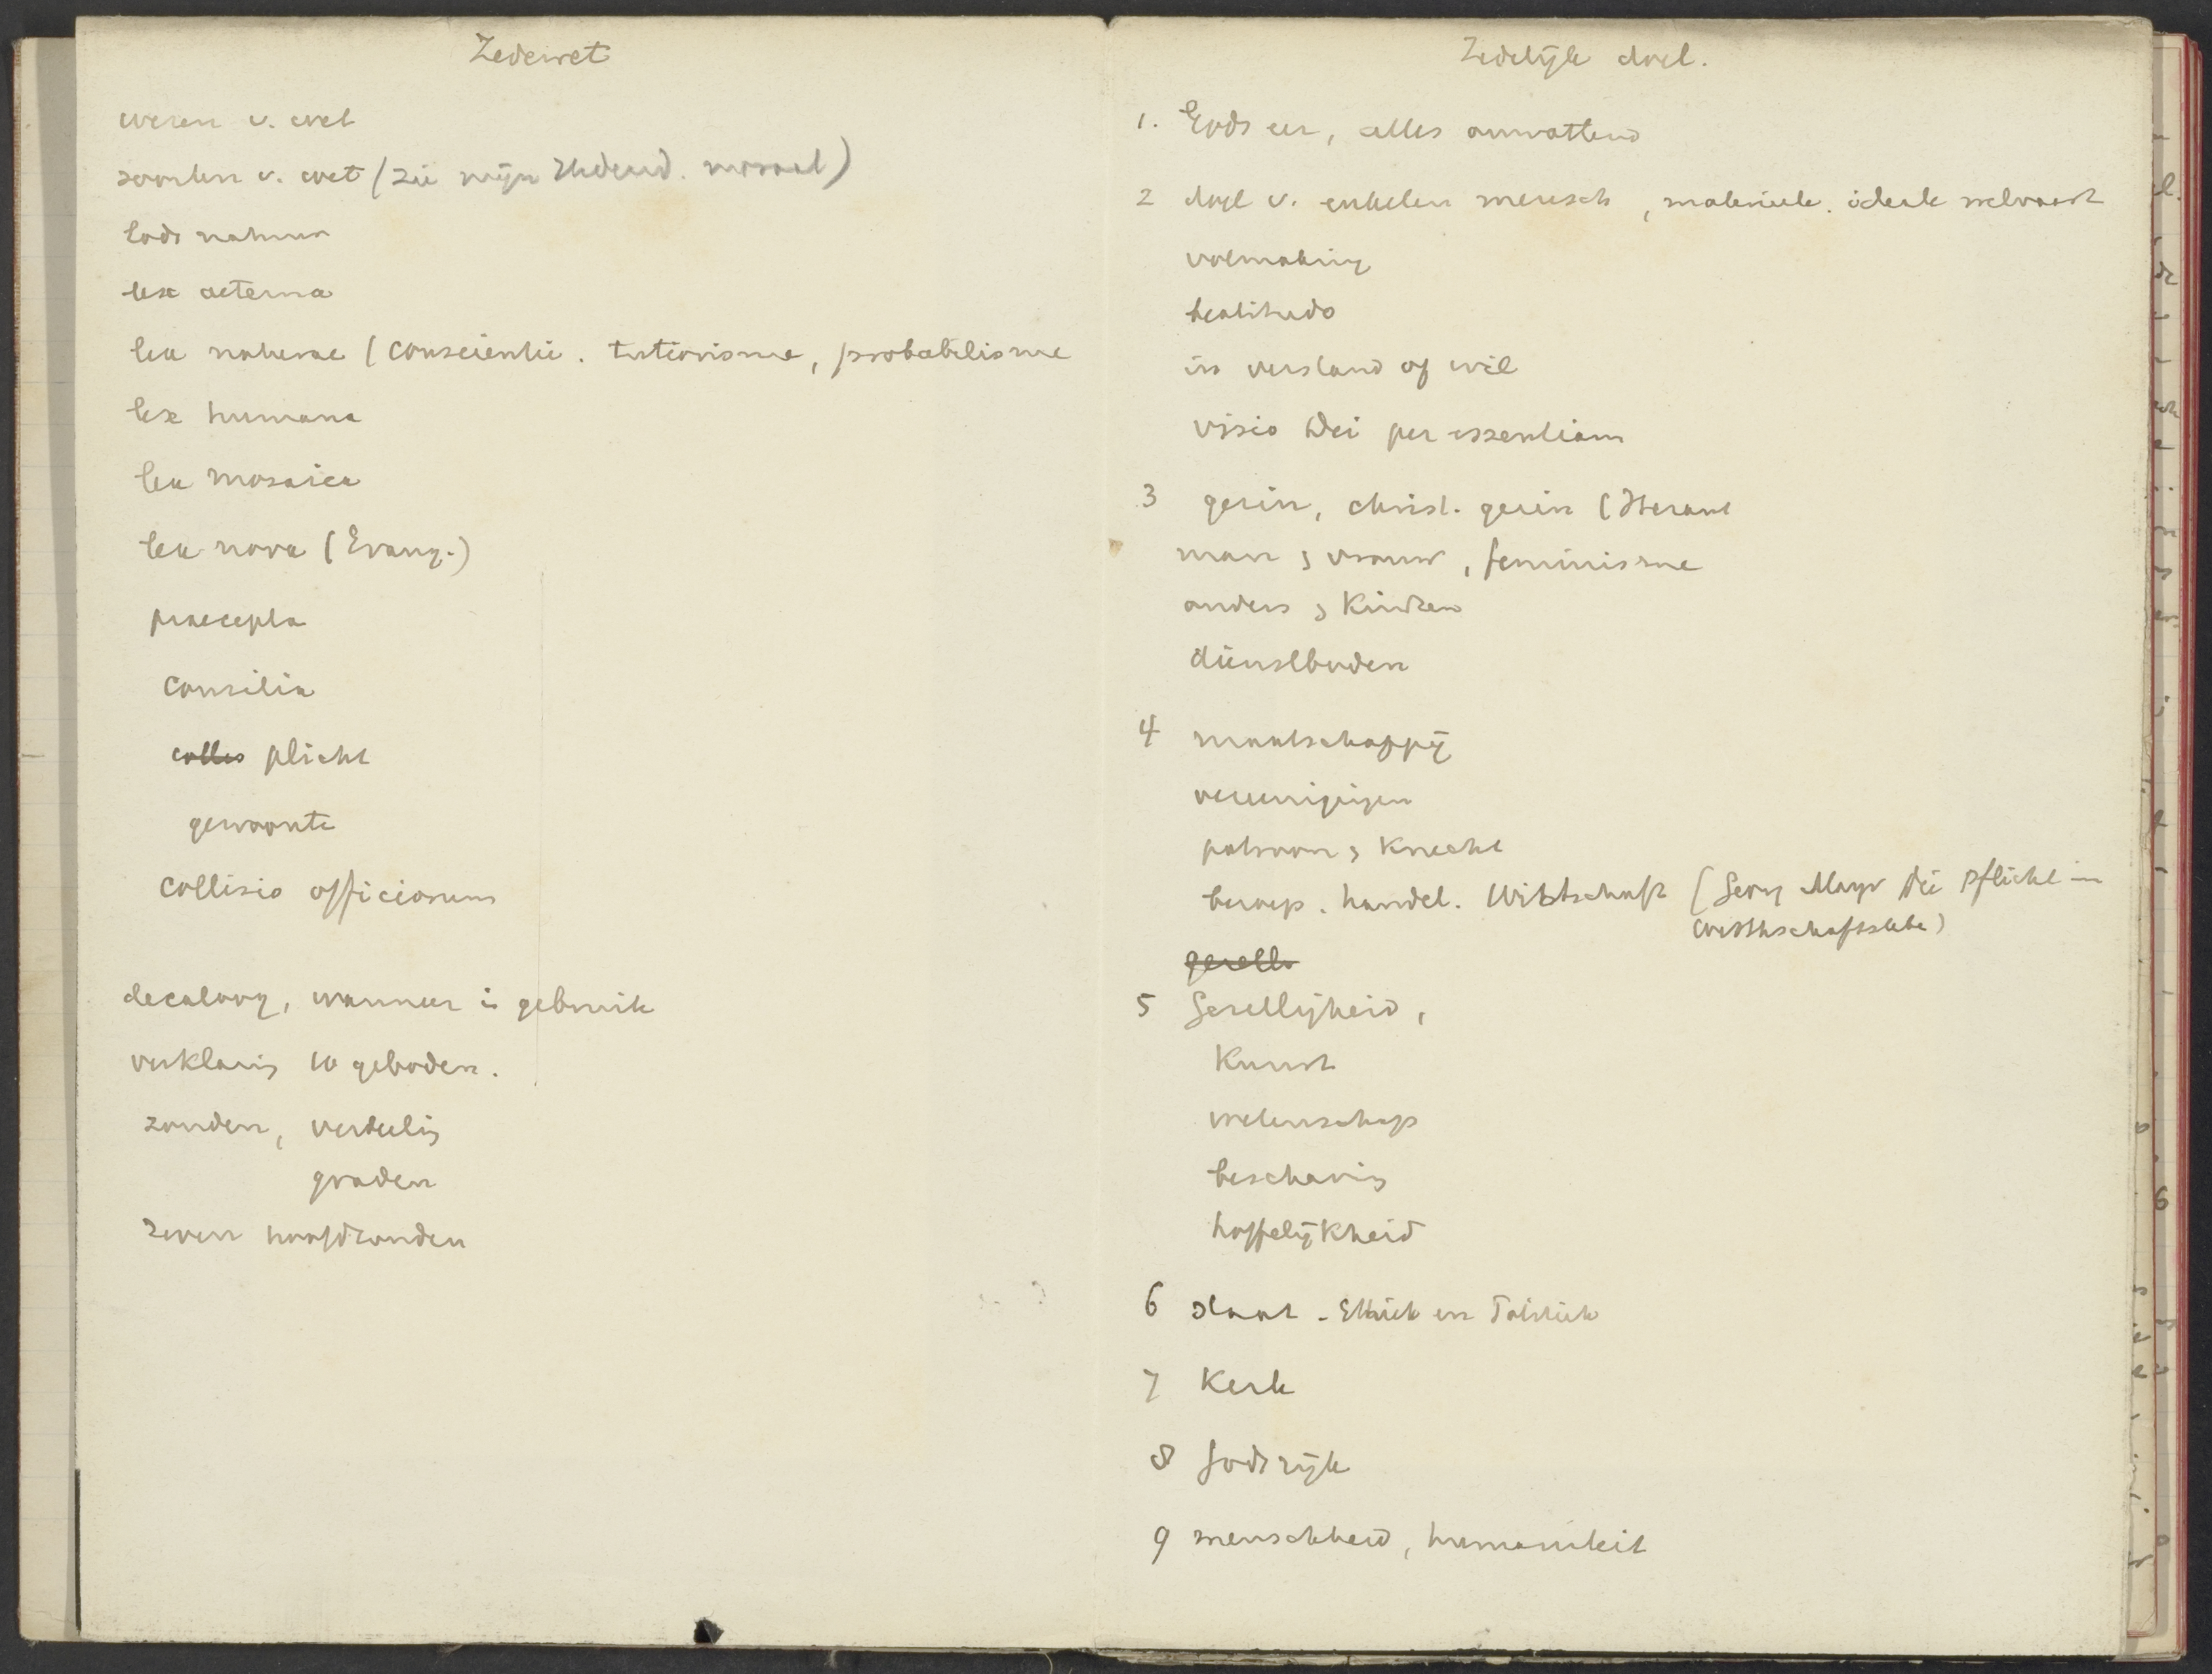 Zedewet
wezen v. wet
soorten v. wet (zie mijn Hedend. moraal)
Gods natuur
lex aeterna
lex naturae (conscientie. tutiorisme, probabilisme
lex humana
lex mosaica
lex nova (Evang.)
praecepta
consilia
collis plicht
gewoonte
collisio officiorum
decaloog, wanneer in gebruik
verklaring 10 geboden.
zonden, verdeeling
graden
zeven hoofdzonden
Zedelijk doel.
1. Gods eer, alles omvattend
2 doel v. enkelen mensch, materieele. ideale welvaart
volmaking
beatitudo
in verstand of wil
visio Dei per essentiam
3 gezin, christ. gezin (Heraut
man & vrouw, feminisme
ouders & Kinderen
dienstboden
4 maatschappij
vereenigingen
patroon & Knecht
beroep. handel. Wirtschaft (Georg Mayr Die Pflicht im
Wirthschaftslebe)
gezell
5 Gezelligheid,
Kunst
wetenschap
beschaving
hoffelijkheid
6 staat - Ethiek en Politiek
7 Kerk
8 Godsrijk
9 menschheid, humaniteit